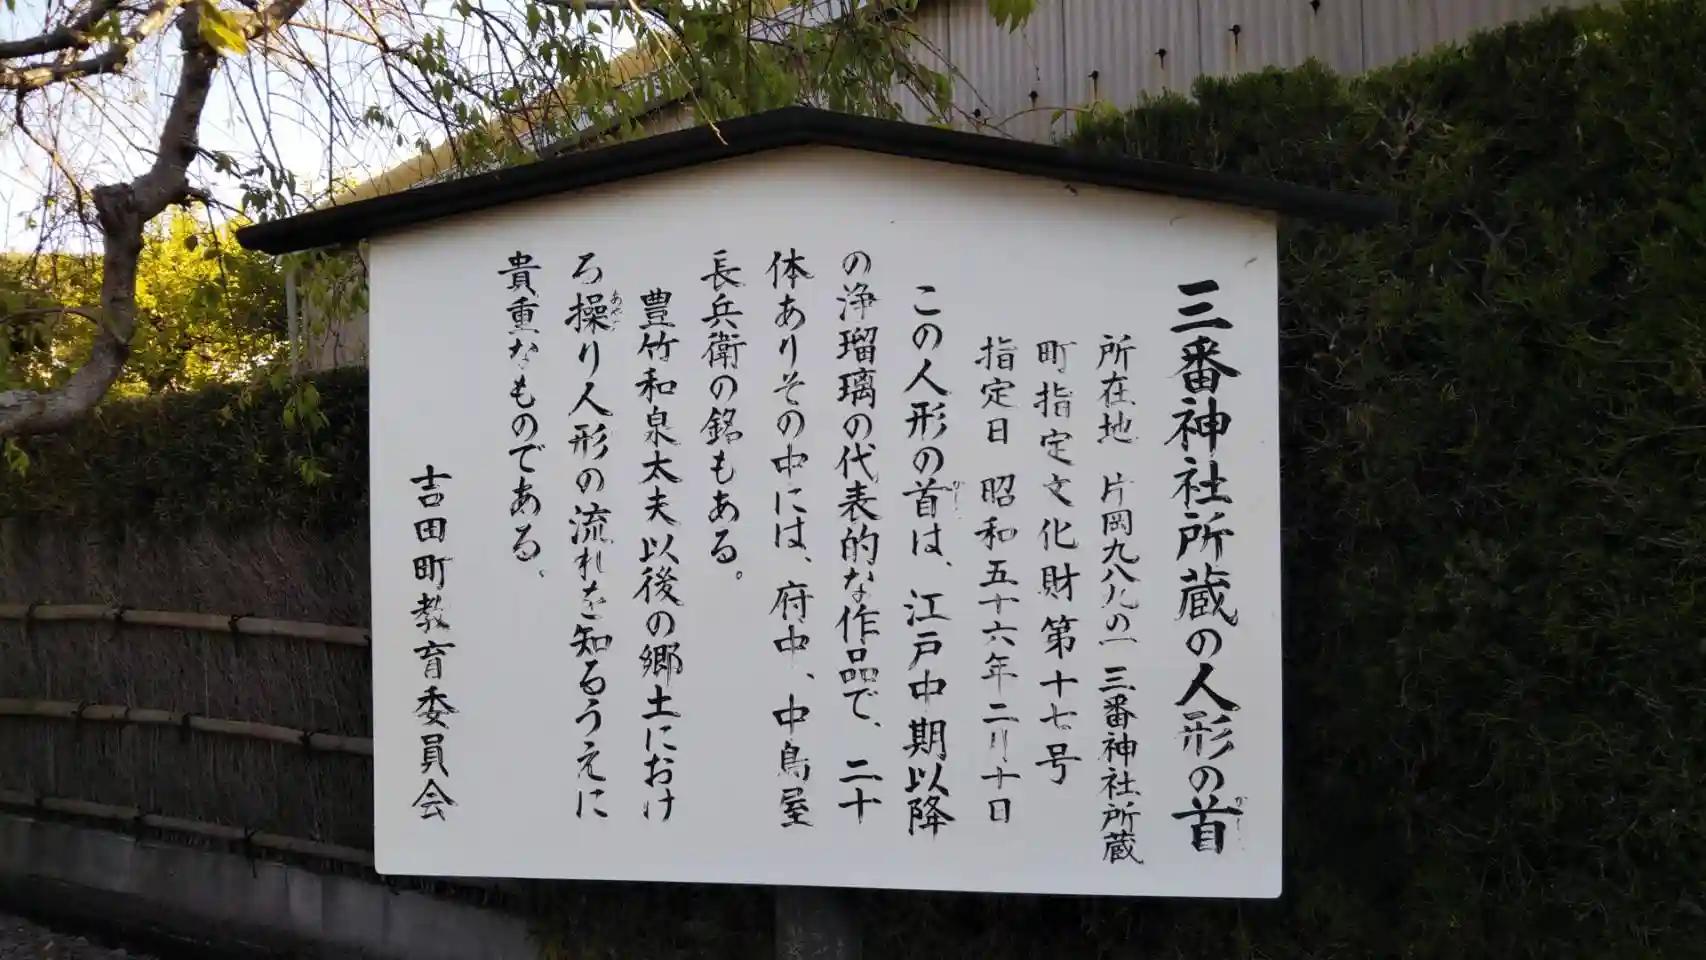 三番神社所蔵の人形の首
所在地 片岡九八九の一 三番神社所蔵
町指定文化財第十七号
指定日 昭和五十六年二月十日
この人形の首は、江戸中期以降
の浄瑠璃の代表的な作品で、二十
体ありその中には、府中、中鳥屋
長兵衛の銘もある。
豊竹和泉太夫以後の郷土におけ
る操り人形の流れを知るうえに
貴重なものである。
吉田町教育委員会